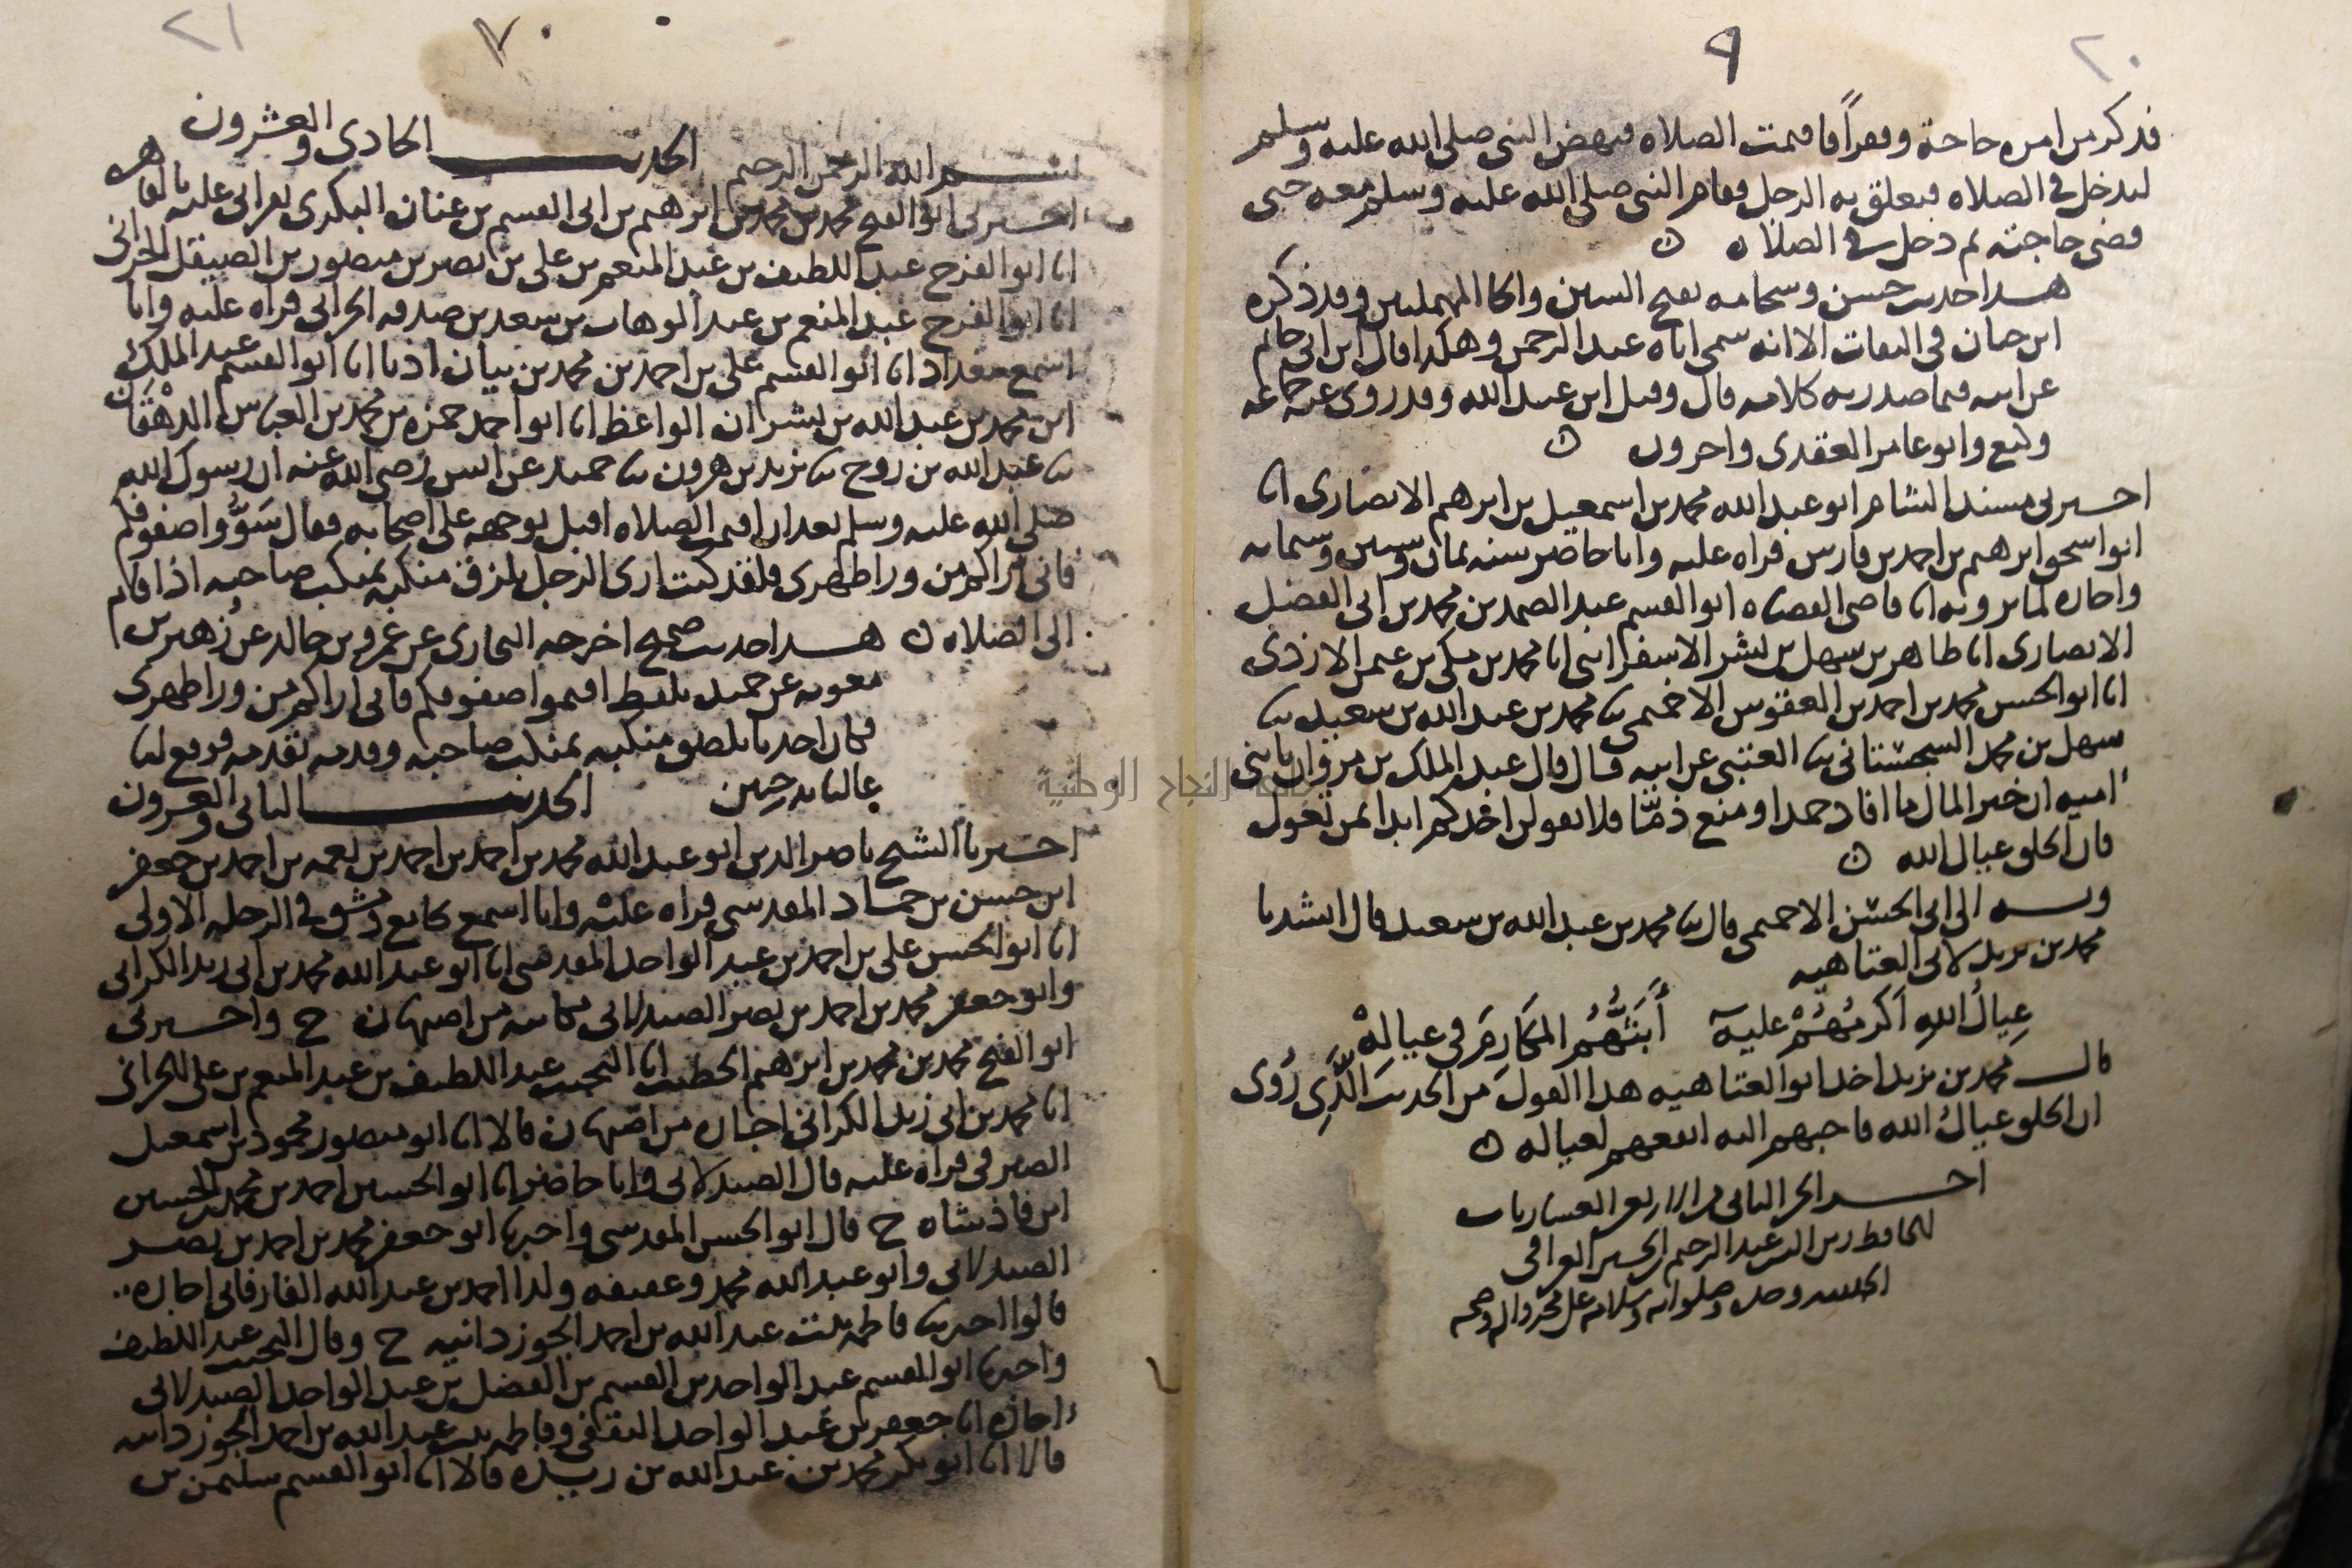 ٢٠
٩
فذكر من امره حاجة وفقراً فاقيمت الصلاه فنهض النبي صلى الله عليه وسلم
ليدخل في الصلاه فتعلق به الرجل فقام النبي صلى الله عليه وسلم معه حتى
قضى حاجته ثم دخل في الصلاه ن ن
هذا حديث حسن وسحامه بفتح السين والحا المهملتين وقد ذكره
ابن حبان في الثقات الا انه سمى اباه عبد الرحمن وهكذا قال ابن ابي حاتم
عن ابيه فيما صدر به كلامه قال وقيل ابن عبد الله وقد روى عنه جماعه
وكيع وابو عامر العقدى واخرون ن
اخبرني مسند الشام ابو عبد الله محمد بن اسمعيل بن ابرهيم الانصارى انا
ابو اسحق ابرهيم بن احمد بن فارس قراه عليه وانا حاضر سنه ثمان وستين وستمايه
واجازه لما يرويه انا قاضى القضاه ابو القسم عبد الصمد بن محمد بن ابي الفضل
الانصارى انا طاهر بن سهل بن بشر الاسفراينى انا محمد بن مكى بن عثمن الازدى
انا ابو الحسن محمد بن احمد بن العباس الاخميمى ثنا محمد بن عبد الله بن سعيد ثنا
سهل بن محمد السجستانى ثنا العتبى عن ابيه قال قال عبد الملك بن مروان يا بنى
اميه ان خير المال ما افاد حمدا ومنع ذمًّا فلا يقولن احدكم ابدا بمن تعول
فان الخلق عيال الله ن
وبــه الى ابى الحسن الاخميمى قال ثنا محمد بن عبد الله بن سعيد قال انشدنا
محمد بن يزيد لابى العتاهيه
عيالُ اللهِ اكرمُهُمْ عليه أَبَثُّهُمُ المكارمَ في عيالهْ
قال محمد بن يزيد اخذ ابو العتاهيه هذا القولَ من الحديث الَّذِى رُوى
ان الخلق عيالُ الله فاحبهم اليه انفعهم لعياله ن
اخـــر الجز الثانى من الاربعين العشاريات
للحافظ زين الدين عبد الرحيم بن الحسين العراقى
الحمد لله وحده وصلواته وسلامه على محمد واله وصحبه
٢١
٢٠
الحديـــث الحادى والعشرون
بســـم الله الرحمن الرحيم
اخبرنى ابو الفتح محمد بن محمد بن ابرهيم بن ابى القسم بن عنان البكرى بقراتى عليه بالقاهره
انا ابو الفرج عبد اللطيف بن عبد المنعم بن على بن نصر بن منصور بن الصيقل الحرانى
انا ابو الفرج عبد المنعم بن عبد الوهاب بن سعد بن صدقه الحرانى قراه عليه وانا
اسمع ببغداد انا ابو القسم على بن احمد بن محمد بن بيان اذنا انا ابو القسم عبد الملك
ابن محمد بن عبد الله بن بشران الواعظ انا ابو احمد حمزه بن محمد بن العباس الدهْقان
ثنا عبد الله بن روح ثنا يزيد بن هرون ثنا حميد عن انس رضى الله عنه ان رسول الله
صلى الله عليه وسلم بعد ان اقيمت الصلاه اقبل بوجهه على اصحابه فقال سَوُّوا صفوفكم
فانى اراكم من ورا ظهرى فلقد كنت ارى الرجل يلزق منكبه بمنكب صاحبه اذا قام
الى الصلاه ن هـــذا حديث صحيح اخرجه البخارى عن عمرو بن خالد عن زُهير بن
معويه عن حميد بلفظ اقيموا صفوفكم فانى اراكم من ورا ظهرى
فكان احدنا يلصق منكبه بمنكب صاحبه وقدمه بقدمه فوقع لنا
عاليا
الحديـــث الثانى والعشرون
اخبرنا الشيخ ناصر الدين ابو عبد الله محمد بن احمد بن احمد بن نعمه بن احمد بن جعفر
ابن حسين بن حماد المقدسى قراه عليه وانا اسمع بجامع دمشق فى الرحله الاولى
انا ابو الحسن على بن احمد بن عبد الواحد المقدسى انا ابو عبد الله محمد بن ابى زيد الكرانى
وابو جعفر محمد بن احمد بن نصر الصيدلانى كتابه من اصبهان ح واخبرنى
ابو الفتح محمد بن محمد بن ابرهيم الخطيب انا النجيب عبد اللطيف بن عبد المنعم بن على الحرانى
انا محمد بن ابى زيد الكرانى اجازه من اصبهان قالا انا ابو منصور محمود بن اسمعيل
الصيرفى قراه عليه قال الصيدلانى وانا حاضر انا ابو الحسين احمد بن محمد بن الحسين
ابن فاذشاه ح قال ابو الحسن المقدسى واخبرنا ابو جعفر محمد بن احمد بن نصر
الصيدلانى وابو عبد الله محمد وعفيفه ولدا احمد بن عبد الله الفارفانى اجازه
قالوا اخبرتنا فاطمه بنت عبد الله بن احمد الجوزدانيه ح وقال النجيب عبد اللطيف
واخبرنا ابو القسم عبد الواحد بن القسم بن الفضل بن عبد الواحد الصيدلانى
اجازه انا جعفر بن عبد الواحد الثقفى وفاطمه بنت عبد الله بن احمد الجوزدانيه
قالا انا ابو بكر محمد بن عبد الله بن ريذه قالا انا ابو القسم سليمن بن
النجاح الوطنية